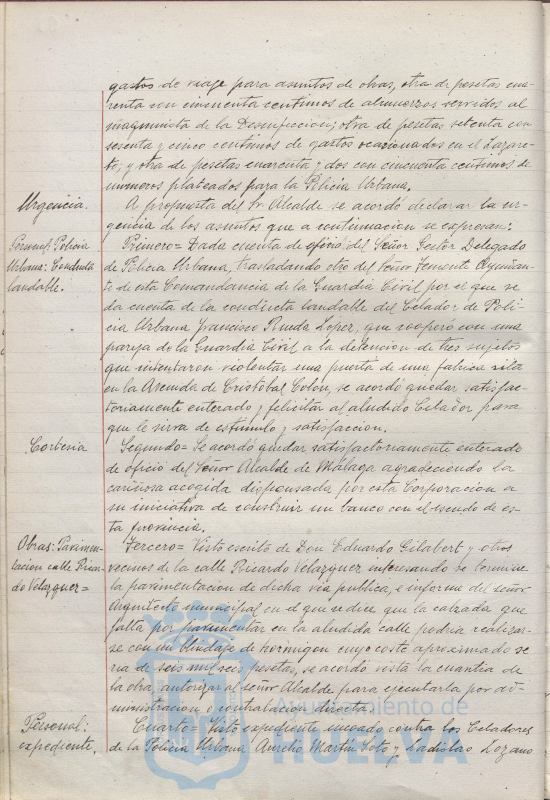 gastos de viaje para asuntos de obras, otra de pesetas cua-
renta con cincuenta centimos de almuerzos servidos al
maquinista de la Desinfeccion; otra de pesetas setenta con
sesenta y cinco centimos de gastos ocasionados en el Lazare-
to; y otra de pesetas cuarenta y dos con cincuenta centimos de
numeros plateados para la Policia Urbana.
Urgencia.
A propuesta del Sr. Alcalde se acordó declarar la ur-
gencia de los asuntos que a continuacion se expresan:
Personal. Policia
Urbana: Conducta
laudable.
Primero= Dada cuenta de oficio del Señor Gestor Delegado
de Policia Urbana, trasladando otro del Señor Teniente Ayudan-
te de esta Comandancia de la Guardia Civil por el que se
da cuenta de la conducta laudable del Celador de Poli-
cia Urbana Francisco Rueda Lopez, que cooperó con una
pareja de la Guardia Civil a la detencion de tres sujetos
que intentaron violentar una puerta de una fabrica sita
en la Avenida de Cristobal Colon, se acordó quedar satisfac-
toriamente enterado y felicitar al aludido Celador para
que le sirva de estímulo y satisfaccion.
Cortesia
Segundo= Se acordó quedar satisfactoriamente enterado
de oficio del Señor Alcalde de Málaga agradeciendo la
cariñosa acogida dispensada por esta Corporacion a
su iniciativa de construir un banco con el escudo de es-
ta provincia.
Obras: Pavimen-
tacion calle Ricar-
do Velazquez=
Tercero= Visto escrito de Don Eduardo Gilabert y otros
vecinos de la calle Ricardo Velazquez interesando se termine
la pavimentacion de dicha via publica, e informe del señor
Arquitecto municipal en el que se dice que la calzada que
falta por pavimentar en la aludida calle podria realizar-
se con un blindaje de hormigon cuyo coste aproximado se
ria de seis mil seis pesetas, se acordó vista la cuantia de
la obra, autorizar al señor Alcalde para ejecutarla por ad-
ministracion o contratacion directa.
Personal:
expediente.
Cuarto= Visto expediente incoado contra los Celadores
de la Policia Urbana Aurelio Martin Soto y Ladislao Lozano
Ayuntamiento de
HUELVA